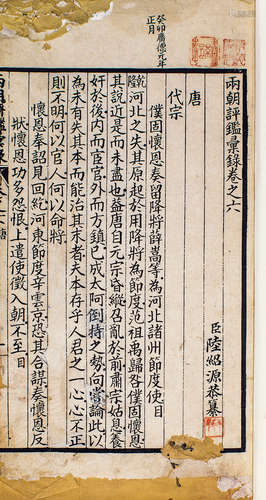 癸卯廣德元年
正月
兩朝評鑑彙錄卷之六
臣陸紹源恭纂
唐
代宗
僕固懷恩奏留降將薛嵩等為河北諸州節度使目
河北之失其原起於用降將為節度范祖禹歸咎僕固懷恩
其說近是而未盡也蓋唐自元宗昏縱召亂於前肅宗姑息養
奸於後內而宦官外而方鎮已成太阿倒持之勢向嘗論此以
為未有失其本而能治其末者夫本存乎人君之一心心不正
則不明何以官人何以命將
懷恩奉詔見回紇河東節度辛雲京恐其合謀奏懷恩反
狀懷恩功多怨恨上遣使徵入朝不至目
兩朝評鑑彙錄
唐